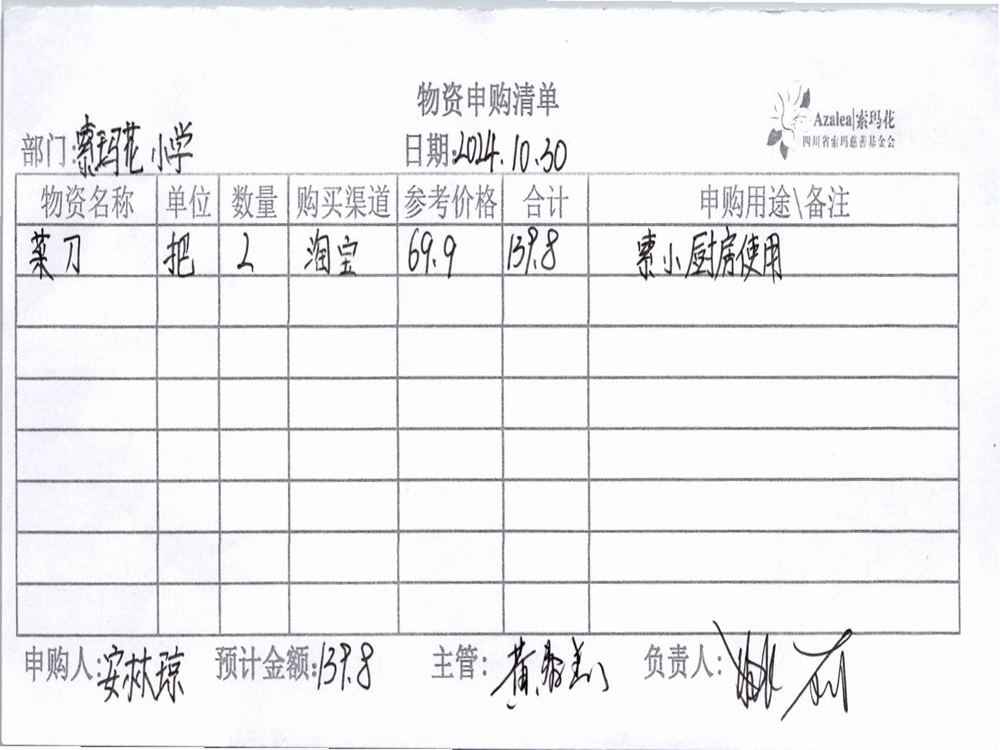 物资申购清单
Azalea|索玛花
四川省索玛慈善基金会
部门:索玛花小学 日期:2024.10.30
物资名称 单位 数量 购买渠道 参考价格 合计 申购用途\备注
菜刀 把 2 淘宝 69.9 139.8 索小厨房使用
申购人:安林琼 预计金额:139.8 主管: 黄 负责人: